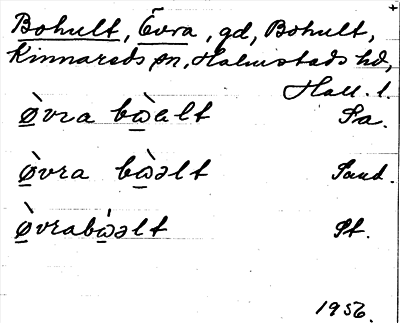 +
Bohult, Övra, gd, Bohult,
Kinnareds sn, Halmstads hd,
Hall. l.
ø̀vra bὼəlt Sa.
ø̀vra bὼəlt Sand.
ø̀vrabὼəlt St.
1956.